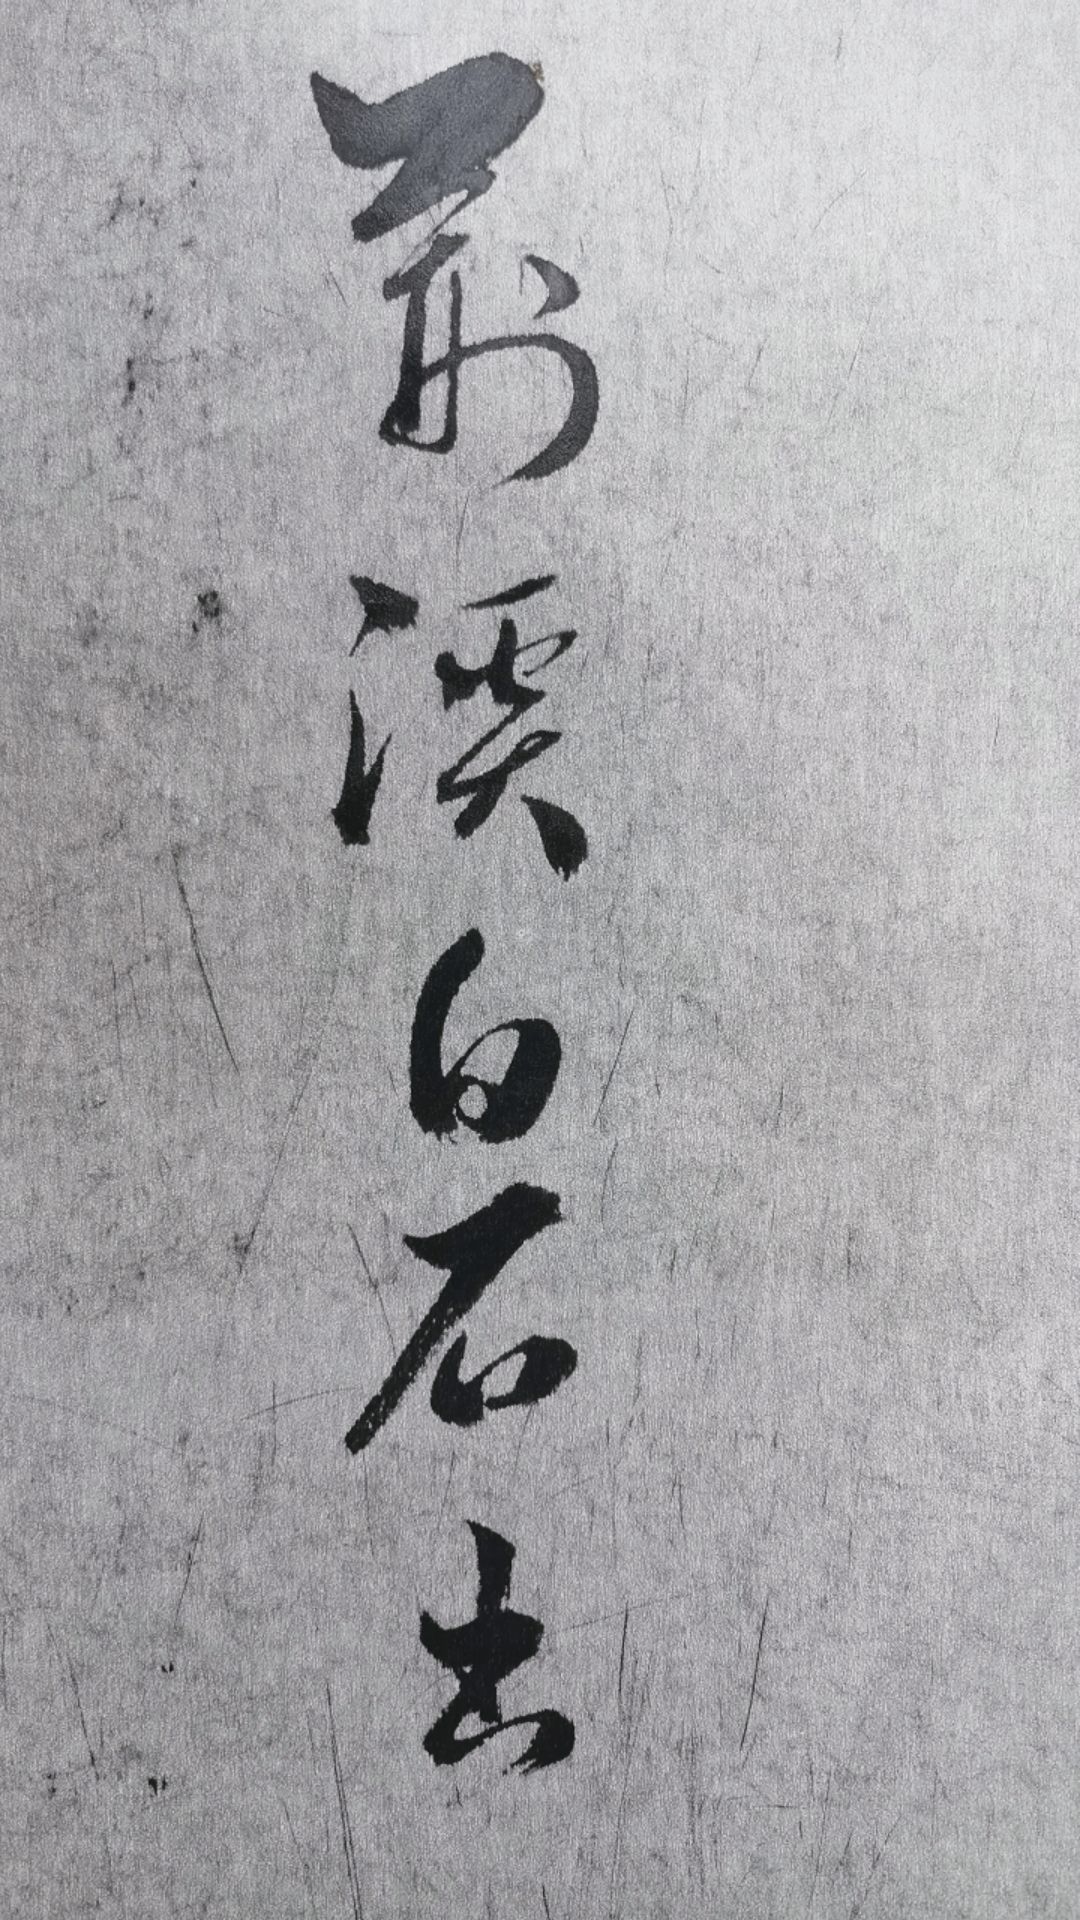 荊溪白石出